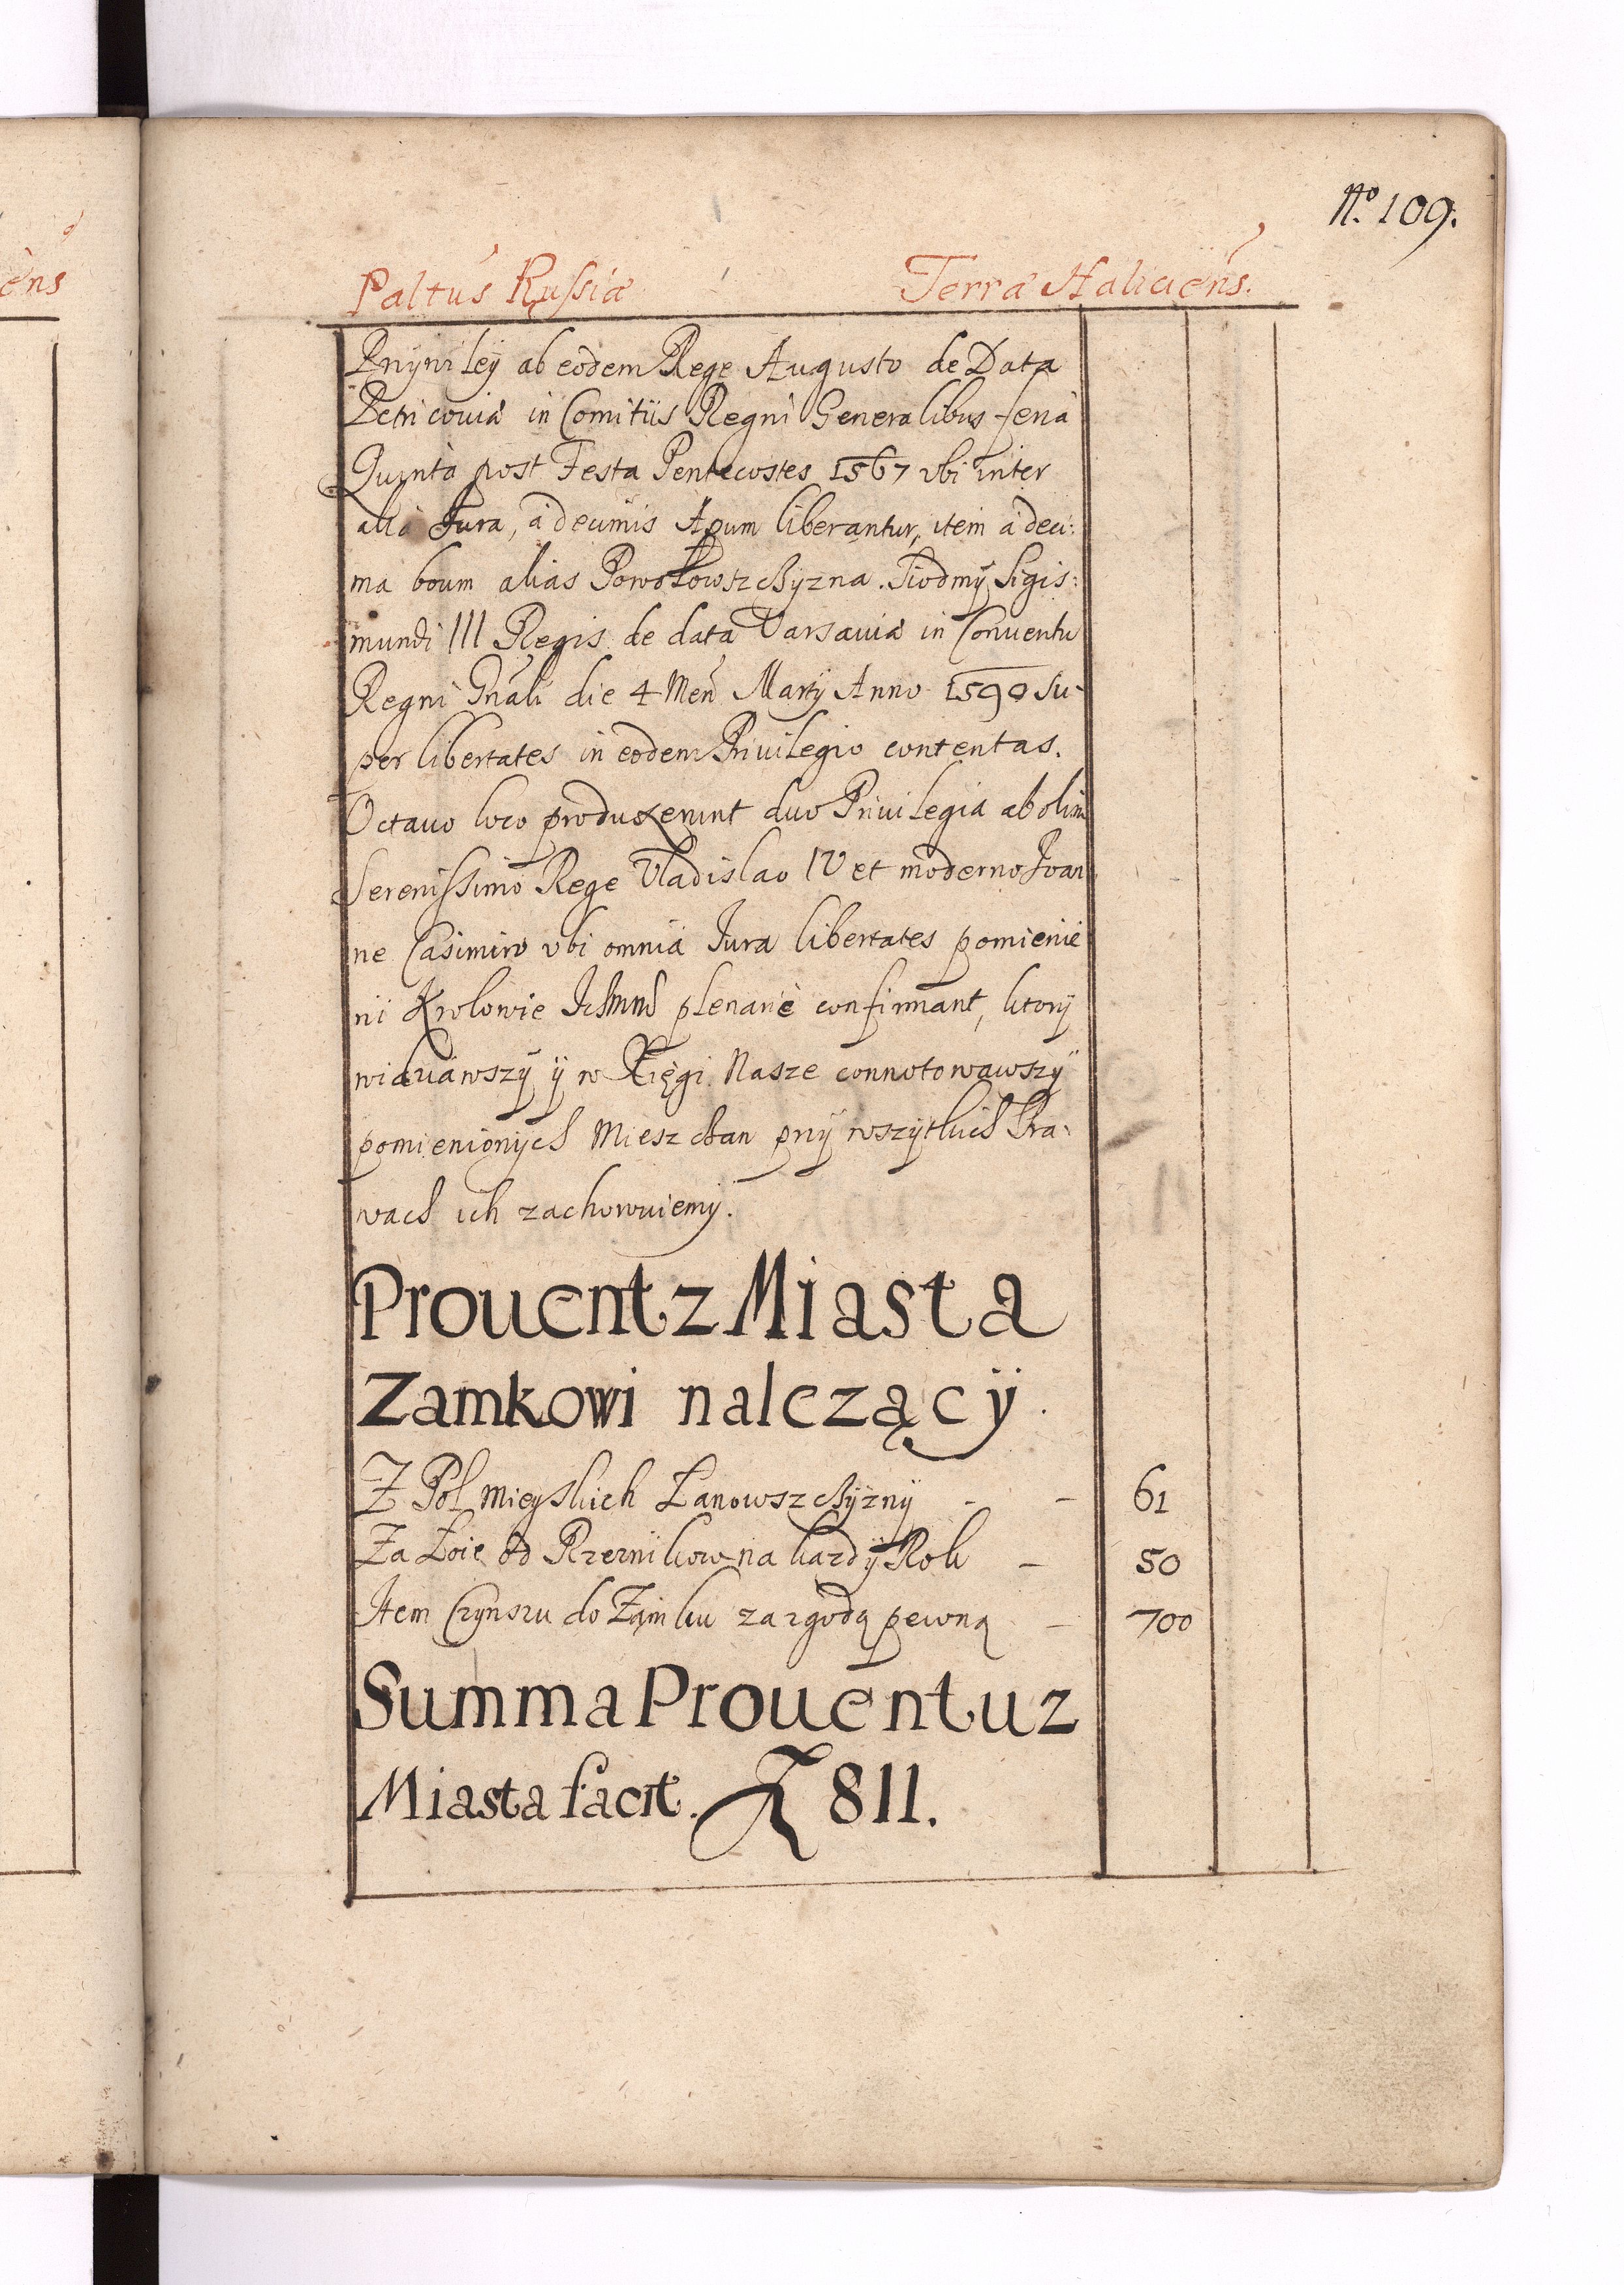 No. 109.
ens
Paltus Russiæ Terra Haliciens.
Przywiley ab eodem Rege Augusto de Data
Petricoviæ in Comitiis Regni Generalibus feria
Quinta post Festa Pentecostes 1567 vbi inter
alia Jura, à decimis Apum liberantur, item à deci:
ma boum alias Powołowszchyzna. Siodmy Sigis:
mundi III Regis de data Varsaviæ in Conventu
Regni Gnali die 4 Men Martij Anno 1590 su-
per libertates in eodem Privilegio contentas.
Octavo loco produxerunt duo Privilegia ab olim
Serenissimo Rege Vladislao IV et moderno Joan
ne Casimiro vbi omnia Jura libertates pomienie
ni Krolowie plenarie confirmant, ktory
widziawszy y w Xięgi Nasze connotowawszy
pomienionych Mieszchan przy wszytkich Pra:
wach ich zachowuiemy.
Prouent z Miasta
Zamkowi należący.
Z Pol Mieyskich Łanowszchyzny - - 61
Za Łoie od Rzeznikow na kazdy Rok - 50
Item Czynszu do Zamku za zgodą pewną - 700
Summa Prouentu z
Miasta facit. 811.